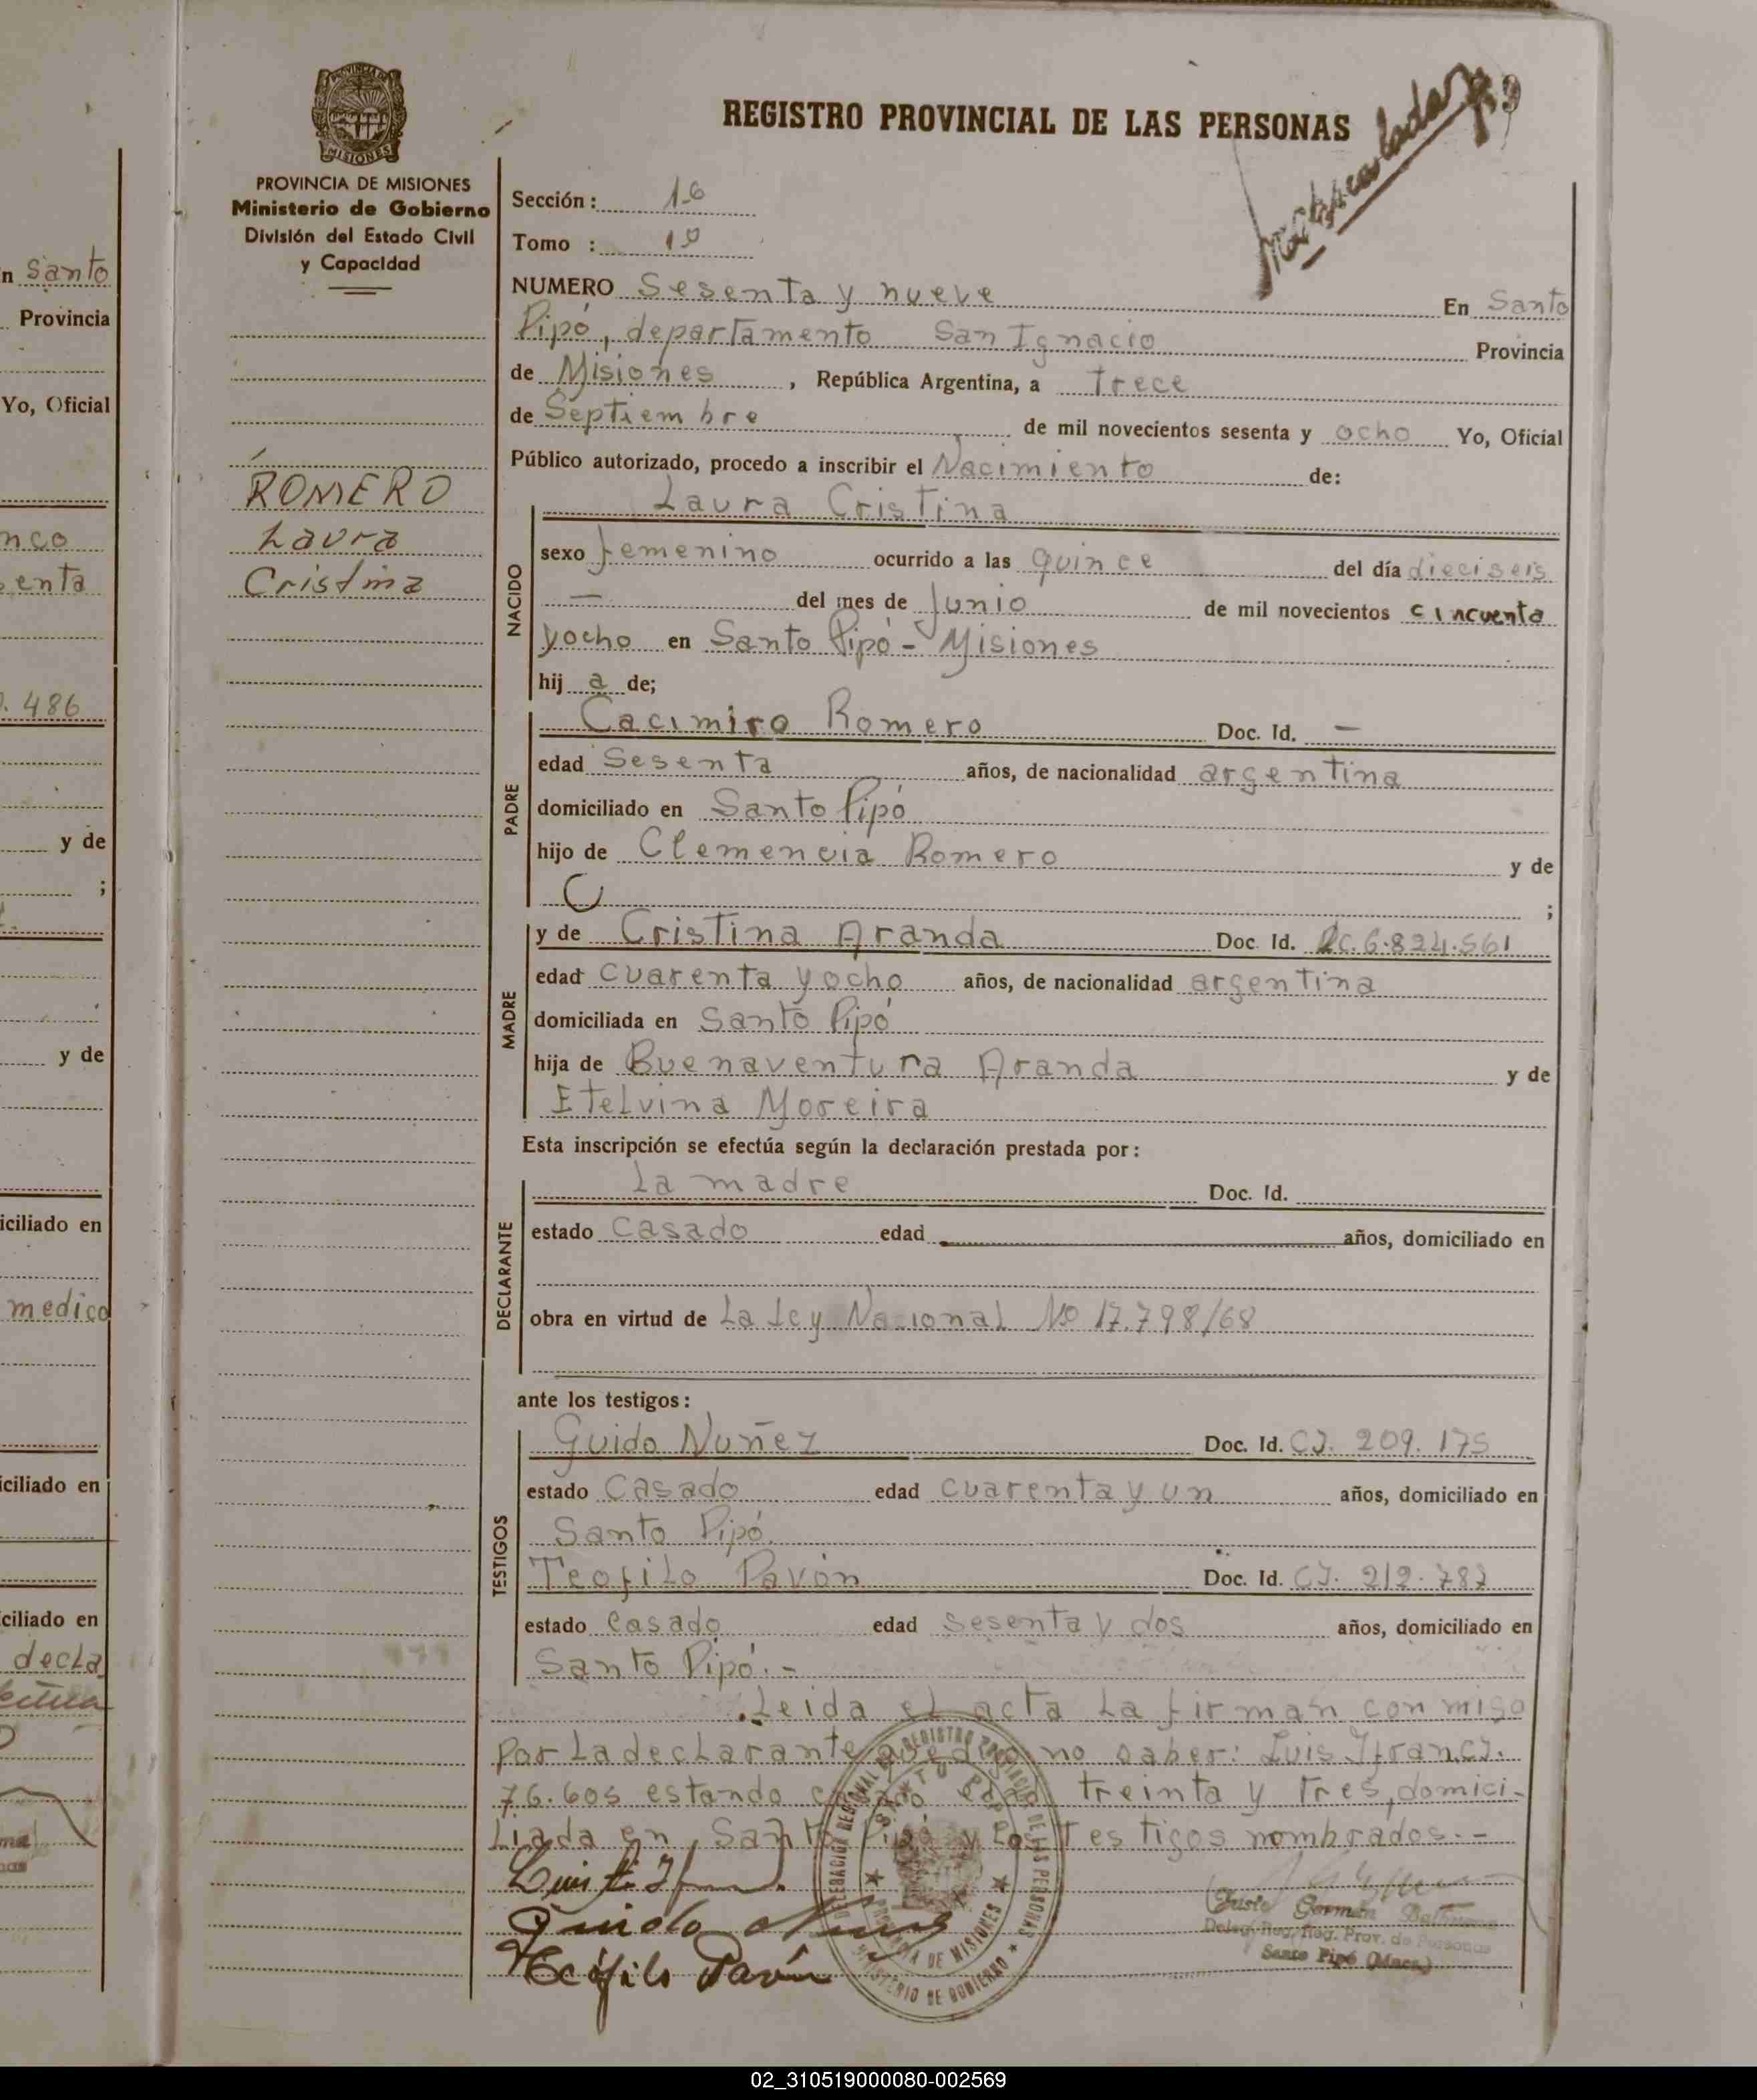 n Santo
Provincia
Yo, Oficial
nco
enta
. 486
y de
;
y de
iciliado en
medico
iciliado en
ciliado en
decla
PROVINCIA DE MISIONES
Ministerio de Gobierno
División del Estado Civil
y Capacidad
ROMERO
Laura
Cristina
REGISTRO PROVINCIAL DE LAS PERSONAS
Sección: 16
Tomo : 1º
NUMERO Sesenta y nueve En Santo
Pipó, departamento San Ignacio Provincia
de Misiones, República Argentina, a Trece
de Septiembre de mil novecientos sesenta y ocho Yo, Oficial
Público autorizado, procedo a inscribir el Nacimiento de:
Laura Cristina
NACIDO
sexo femenino ocurrido a las quince del día dieciseis
— del mes de Junio de mil novecientos cincuenta
yocho en Santo Pipó - Misiones
hij a de;
PADRE
Cacimiro Romero Doc. Id. —
edad Sesenta años, de nacionalidad argentina
domiciliado en Santo Pipó
hijo de Clemencia Romero y de
;
MADRE
y de Cristina Aranda Doc. Id. LC. 6.824.561
edad cuarenta yocho años, de nacionalidad argentina
domiciliada en Santo Pipó
hija de Buenaventura Aranda y de
Etelvina Moreira
Esta inscripción se efectúa según la declaración prestada por:
DECLARANTE
La madre Doc. Id.
estado Casado edad años, domiciliado en
obra en virtud de La Ley Nacional Nº 17.798/68
ante los testigos:
TESTIGOS
Guido Nuñez Doc. Id. CI. 209.175
estado Casado edad cuarenta y un años, domiciliado en
Santo Pipó.
Teofilo Pavón Doc. Id. CI. 212.787
estado casado edad sesenta y dos años, domiciliado en
Santo Pipó.-
Leida el acta la firman conmigo
por la declarante que dijo no saber: Luis Ifran CI.
76.605 estando casado edad treinta y tres, domici-
liada en Santo Pipó y los testigos nombrados.-
Guido Nuñez
Teófilo Pavón
DELEGACION REGIONAL DEL REGISTRO PROVINCIAL DE LAS PERSONAS
SANTO PIPÓ
PROVINCIA DE MISIONES
MINISTERIO DE GOBIERNO
Germán
Deleg. Reg. Reg. Prov. de Personas
Santo Pipó (Mnes.)
02_310519000080-002569